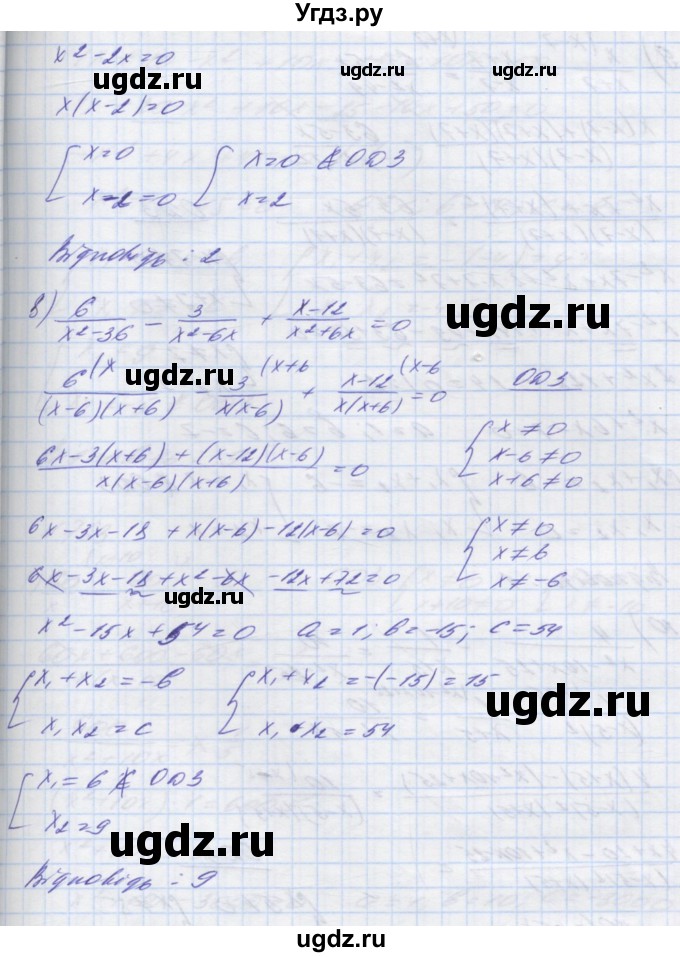 Угдз.ру
x² - 2x = 0
ugdz.ru
ugdz.ru
x(x-2) = 0
{ x = 0 { x = 0 ∉ ОДЗ
x - 2 = 0 x = 2
ugdz.ru
Відповідь: 2
в) 6/(x²-36) - 3/(x²-6x) + (x-12)/(x²+6x) = 0
ugdz.ru
6(x/((x-6)(x+6)) - 3(x+6/(x(x-6)) + x-12(x-6/(x(x+6)) = 0 ОДЗ
ugdz.ru
(6x-3(x+6)+(x-12)(x-6))/(x(x-6)(x+6)) = 0 { x ≠ 0
x-6 ≠ 0
x+6 ≠ 0
6x-3x-18+x(x-6)-12(x-6) = 0 { x ≠ 0
6x-3x-18+x²-6x-12x+72 = 0 x ≠ 6
x ≠ -6
ugdz.ru
x²-15x+54 = 0 a = 1; b = -15; c = 54
{ x₁+x₂ = -b { x₁+x₂ = -(-15) = 15
x₁x₂ = c x₁·x₂ = 54
ugdz.ru
{ x₁ = 6 ∉ ОДЗ
x₂ = 9
ugdz.ru
ugdz.ru
Відповідь: 9
ugdz.ru